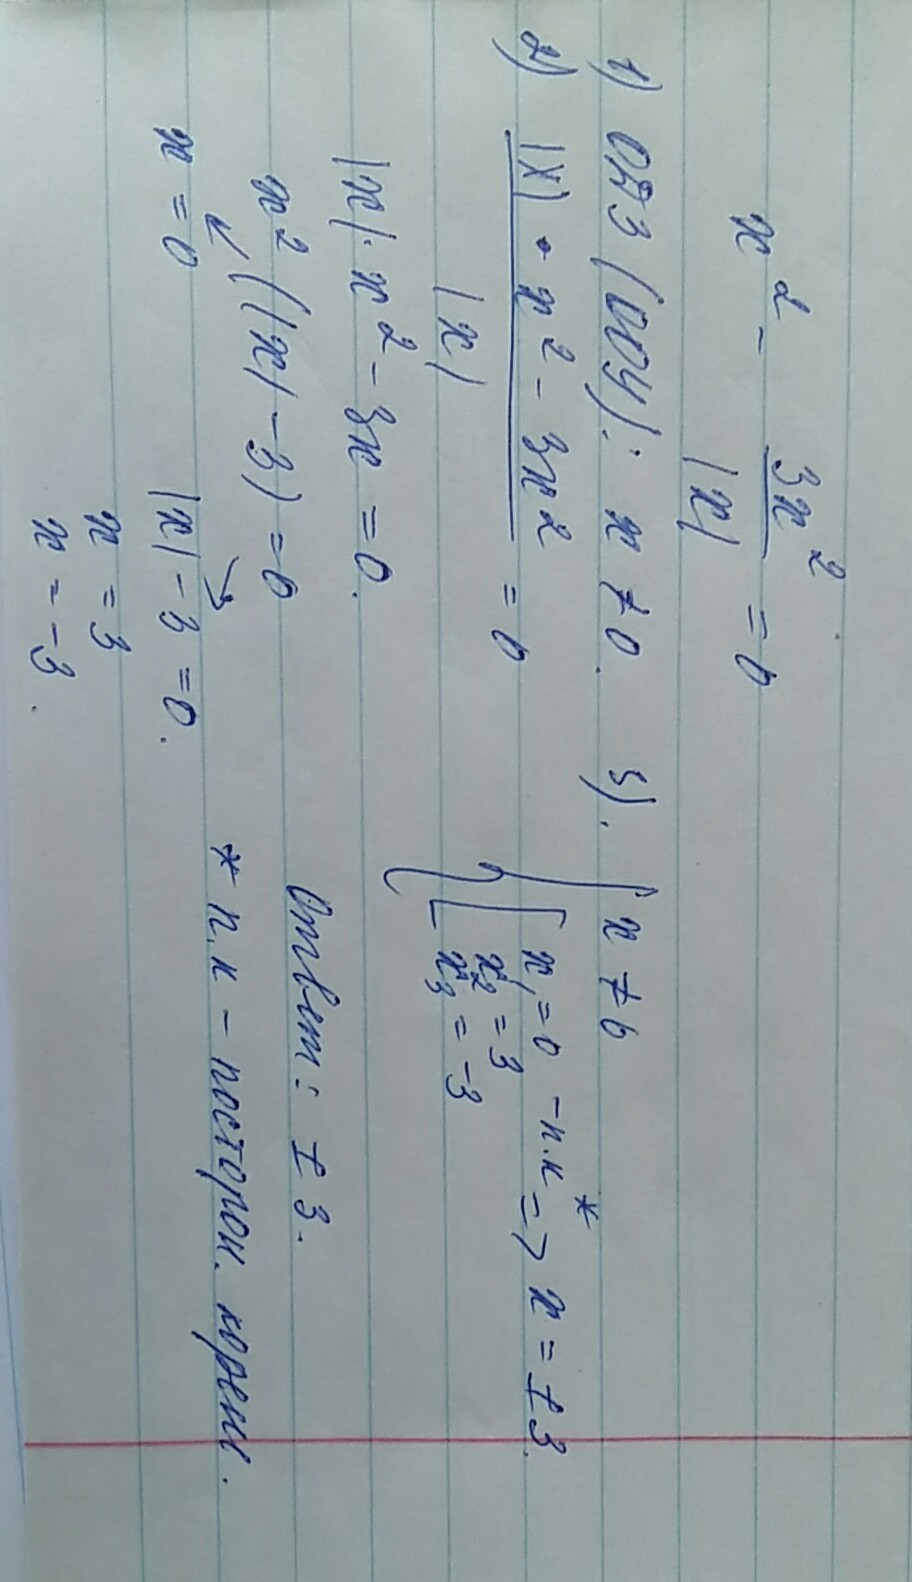 x² - 3x²/|x| = 0
1) ОДЗ (ООУ): x ≠ 0.
2) |x| • x² - 3x² / |x| = 0
|x| · x² - 3x = 0.
x² (|x| - 3) = 0
↙ ↘
x = 0 |x| - 3 = 0.
x = 3
x = -3.
3). { x ≠ 0
[ x₁ = 0 - п.к* => x = ± 3.
x₂ = 3
x₃ = -3
Ответ: ± 3.
* п.к - посторон. корень.